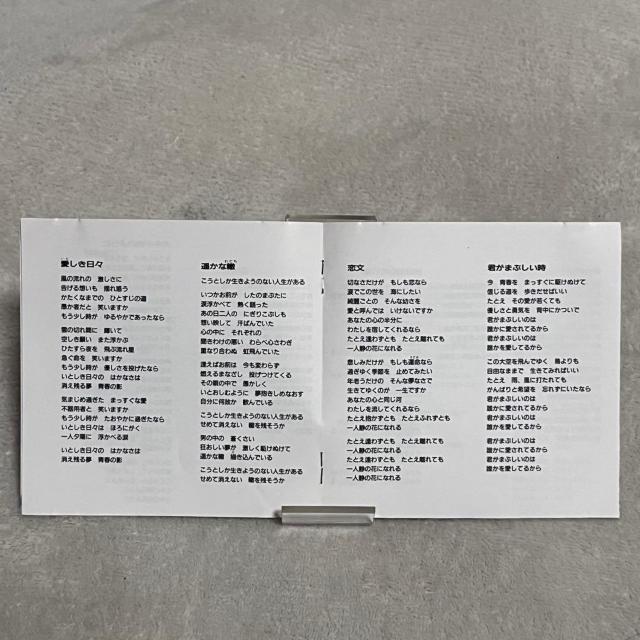 愛しき日々
風の流れの 激しさに
告げる想いも 揺れ惑う
かたくなまでの ひとすじの道
愚か者だと 笑いますか
もう少し時が ゆるやかであったなら
雲の切れ間に 輝いて
空しき願い また浮かぶ
ひたすら夜を 飛ぶ流れ星
急ぐ命を 笑いますか
もう少し時が 優しさを投げたなら
いとしき日々の はかなさは
消え残る夢 青春の影
気まじめ過ぎた まっすぐな愛
不器用者と 笑いますか
もう少し時が たおやかに過ぎたなら
いとしき日々は ほろにがく
一人夕陽に 浮かべる涙
いとしき日々の はかなさは
消え残る夢 青春の影
遥かな轍
わだち
こうとしか生きようのない人生がある
いつかお前が したのまぶたに
涙浮かべて 熱く語った
あの日二人の にぎりこぶしも
想い映して 汗ばんでいた
心の中に それぞれの
聞きわけの悪い わらべ心さわぎ
重なり合わぬ 虹飛んでいた
逢えばお前は 今も変わらず
燃えるまなざし 投げつけてくる
その眼の中で 愚かしく
いとおしむように 夢抱きしめなおす
自分に何故か 歓んでいる
こうとしか生きようのない人生がある
せめて消えない 轍を残そうか
男の中の 蒼くさい
狂おしい夢が 激しく駆けぬけて
遥かな轍 描き込んでいる
こうとしか生きようのない人生がある
せめて消えない 轍を残そうか
恋文
切なさだけが もしも恋なら
涙でこの世を 海にしたい
綺麗ごとの そんな幼さを
愛と呼んでは いけないですか
あなたの心の半分に
わたしを宿してくれるなら
たとえ違わずとも たとえ離れても
一人静の花になれる
悲しみだけが もしも運命なら
過ぎゆく季節を 止めてみたい
年老うだけの そんな夢なさで
生きてゆくのが 一生ですか
あなたの心と同じ河
わたしを流してくれるなら
たとえ抱かずとも たとえふれずとも
一人静の花になれる
たとえ違わずとも たとえ離れても
一人静の花になれる
たとえ違わずとも たとえ離れても
一人静の花になれる
一人静の花になれる
君がまぶしい時
今 青春を まっすぐに駆けぬけて
信じる道を 歩きだせばいい
たとえ その愛が若くても
優しさと勇気を 背中にかついで
君がまぶしいのは
誰かに愛されてるから
君がまぶしいのは
誰かを愛してるから
この大空を飛んでゆく 鳥よりも
自由なままで 生きてみればいい
たとえ 雨、風に打たれても
がんばりと希望を 忘れずにいたなら
君がまぶしいのは
誰かに愛されてるから
君がまぶしいのは
誰かを愛してるから
君がまぶしいのは
誰かに愛されてるから
君がまぶしいのは
誰かを愛してるから